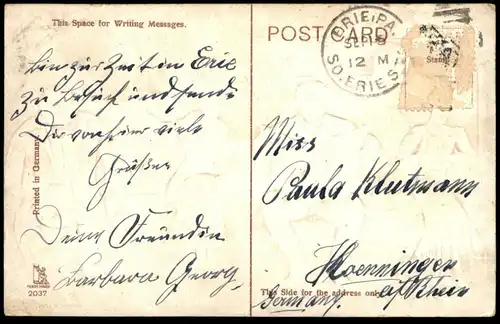 This Space for Writing Messages.
Bin zur Zeit in Erie
Zu Besuch und sende
Dir von hier viele
Grüßse
Deine Freundin
Barbara Georg
Printed in Germany
2037
POST CARD
ERIE, PA.
SEP 18
12 M
SO. ERIE S
Miss
Paula Klutmann
Hoenningen
a/Rhein
Germany.
This Side for the address only